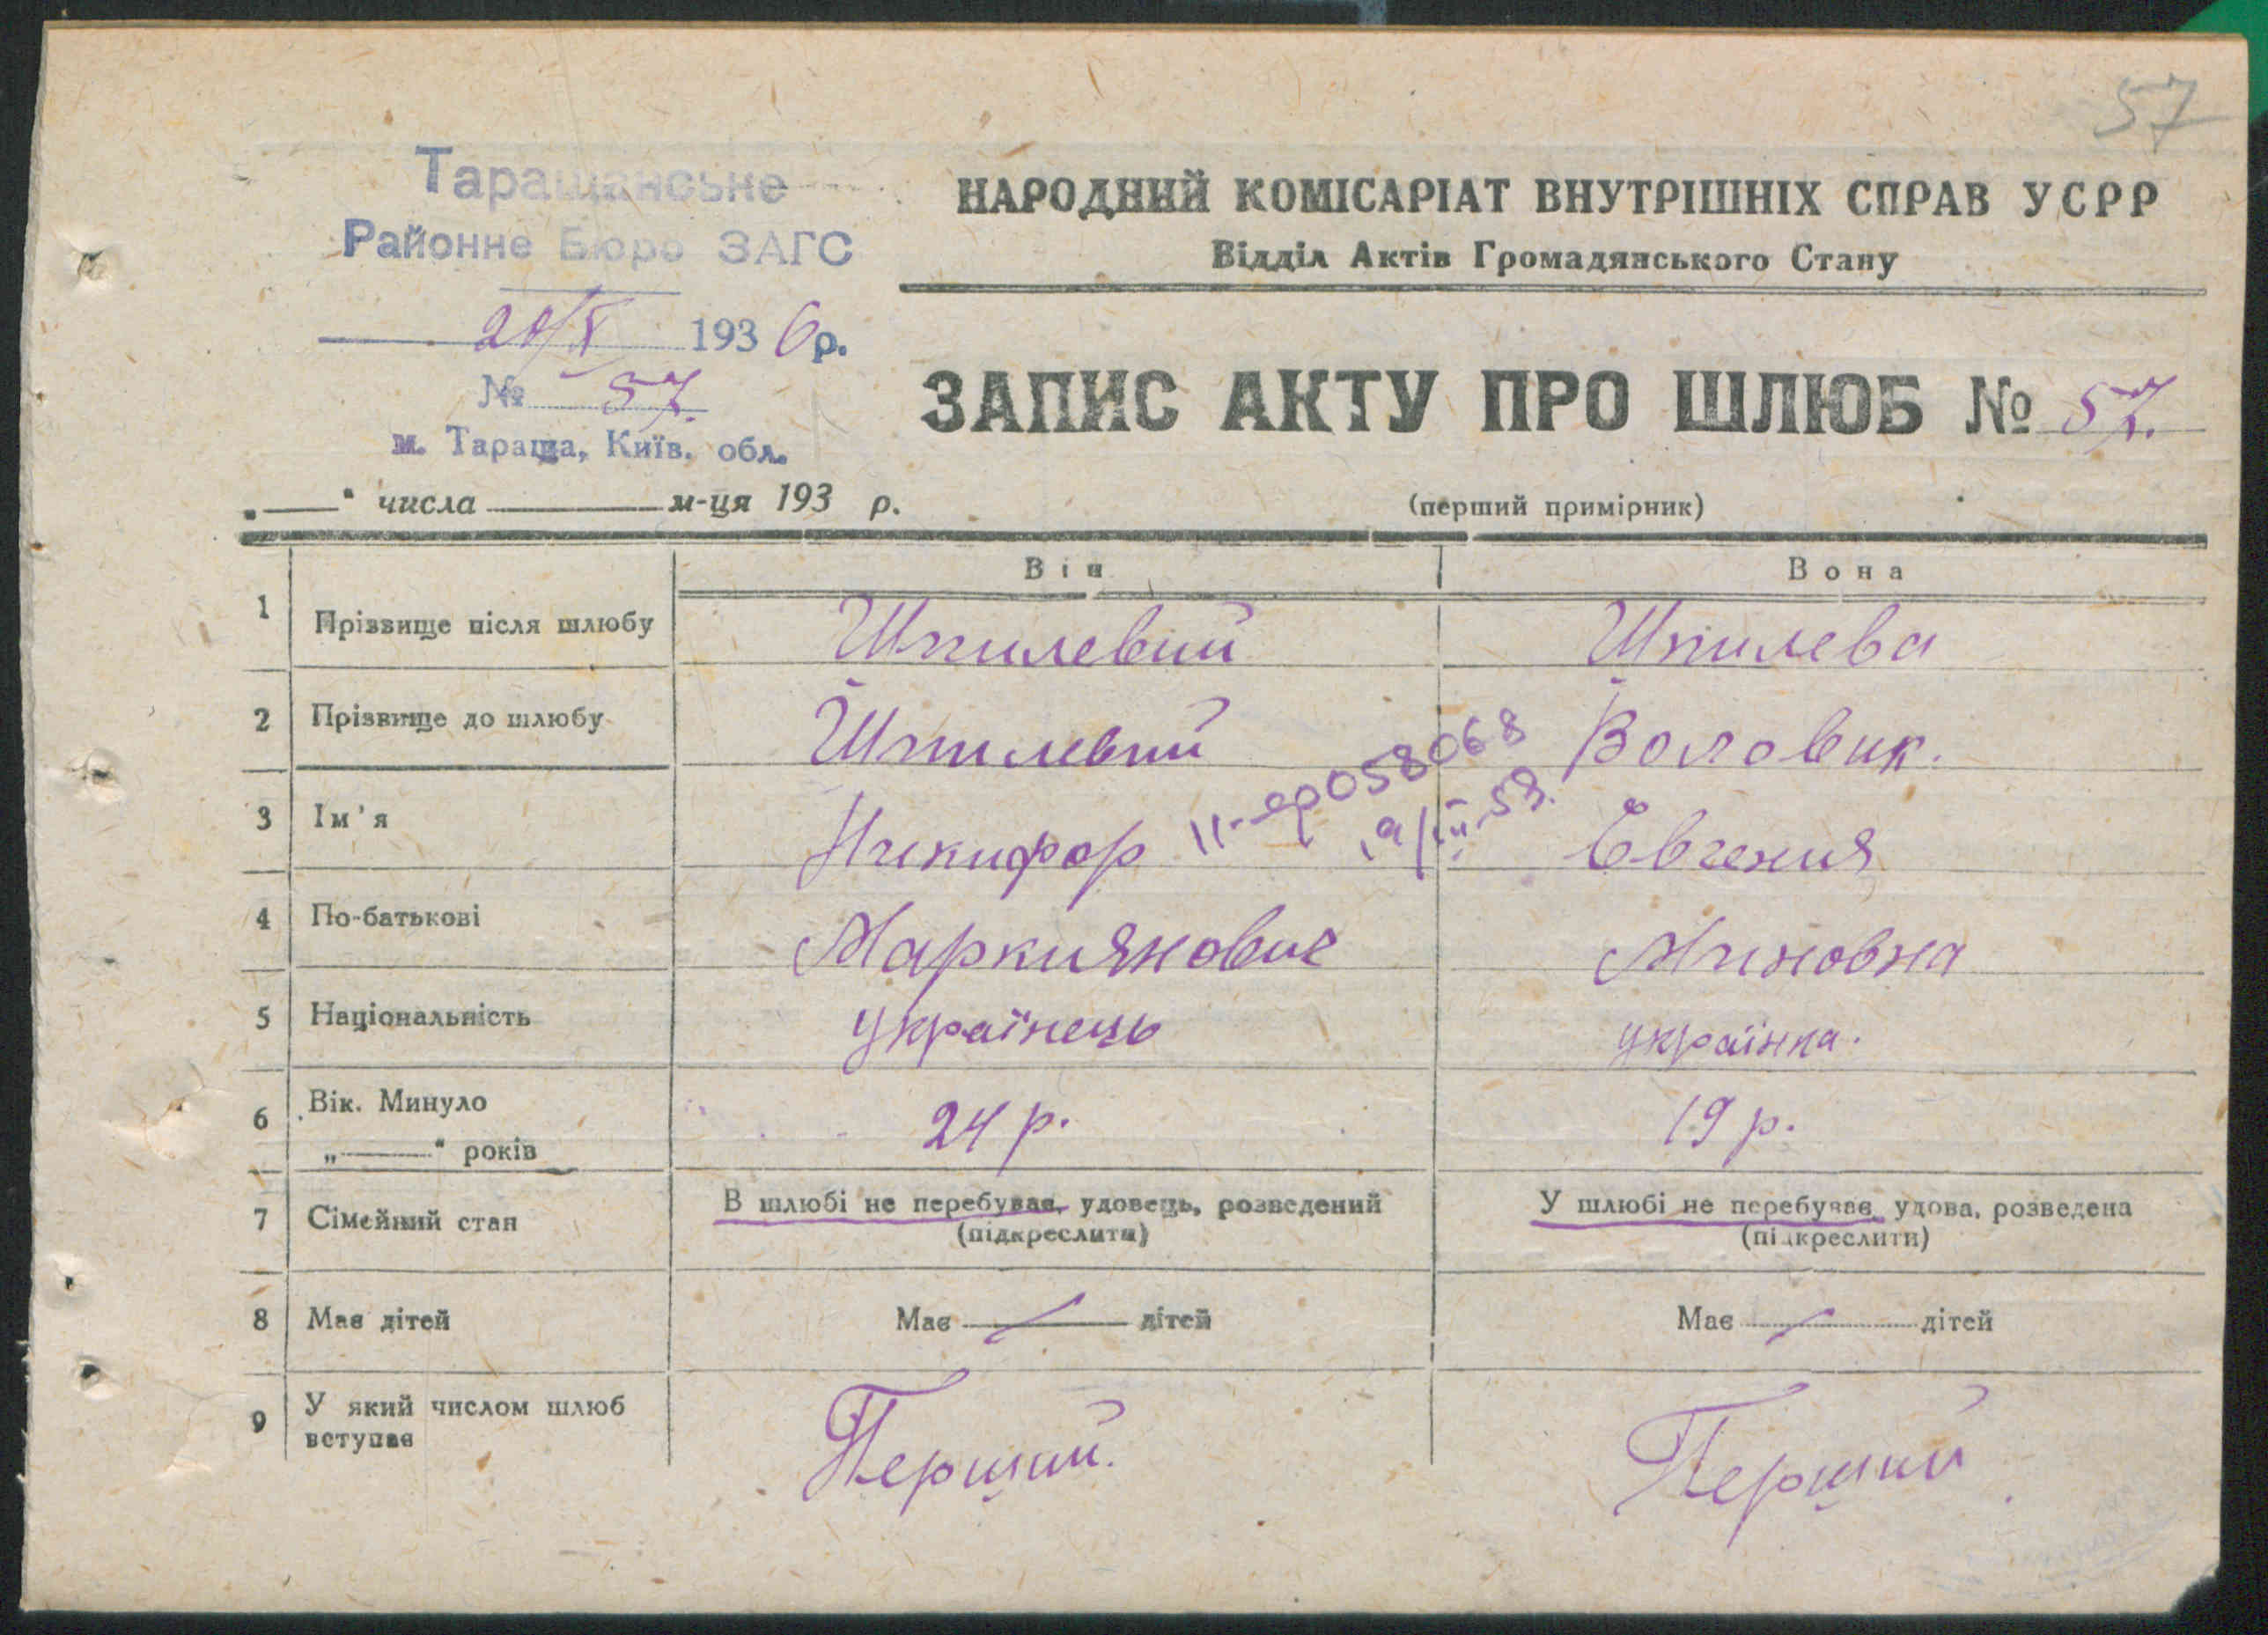 57
Таращанське
Районне Бюро ЗАГС
20/V 1936 р.
№ 57.
м. Тараща, Київ. обл.
„——“ числа ———— м-ця 193 р.
НАРОДНИЙ КОМІСАРІАТ ВНУТРІШНІХ СПРАВ УСРР
Відділ Актів Громадянського Стану
ЗАПИС АКТУ ПРО ШЛЮБ № 57.
(перший примірник)
Він Вона
1 Прізвище після шлюбу Шпилевий Шпилева
2 Прізвище до шлюбу Шпилевий Воловик.
3 Ім'я Никифор Евгения
058068
4 По-батькові Маркиянович Миновна
5 Національність Українець українка.
6 Вік. Минуло 24 р. 19 р.
„——“ років
7 Сімейний стан В шлюбі не перебував, удовець, розведений У шлюбі не перебуває, удова, розведена
(підкреслити) (підкреслити)
8 Має дітей Має —— дітей Має —— дітей
9 У який числом шлюб Перший. Перший
вступає